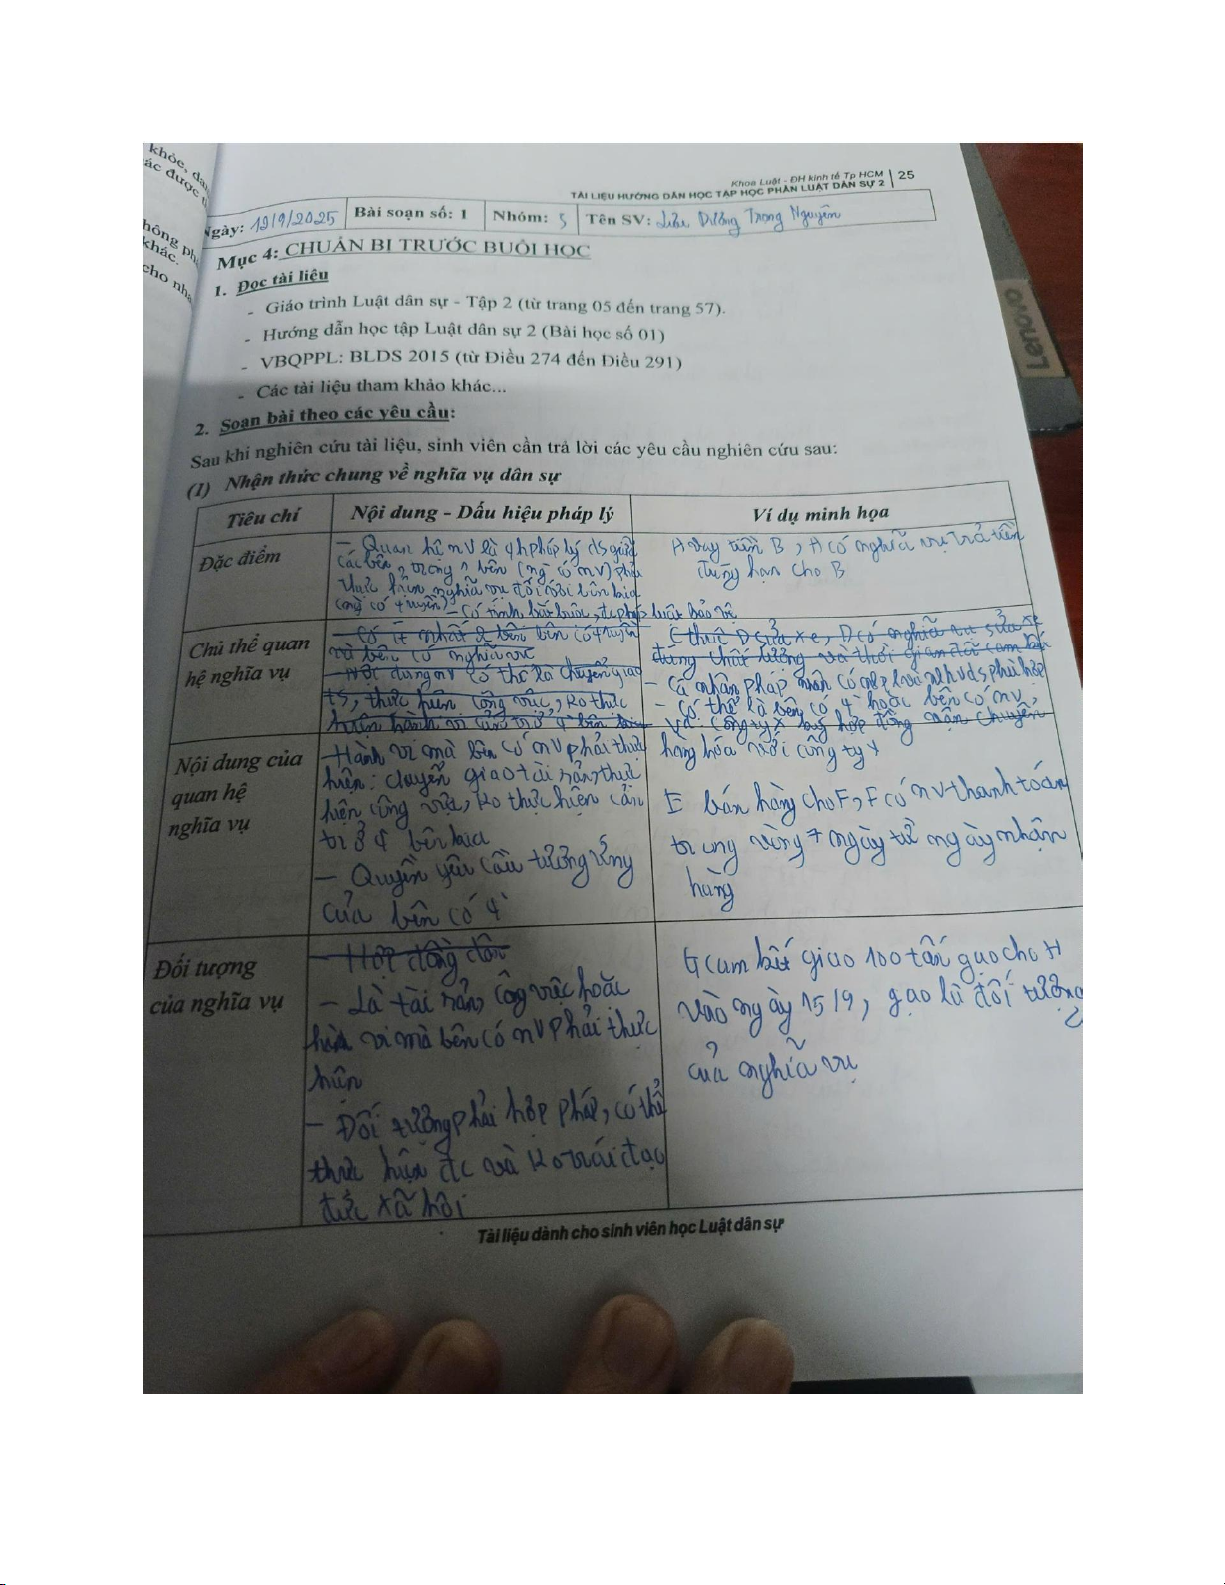 khỏe, da
ác được
hông ph
khác.
cho nh
Khoa Luật - ĐH kinh tế Tp HCM | 25
TÀI LIỆU HƯỚNG DẪN HỌC TẬP HỌC PHẦN LUẬT DÂN SỰ 2
Ngày: 19/9/2025 Bài soạn số: 1 Nhóm: 5 Tên SV: Dương Trọng Nguyên
Mục 4: CHUẨN BỊ TRƯỚC BUỔI HỌC
1. Đọc tài liệu
- Giáo trình Luật dân sự - Tập 2 (từ trang 05 đến trang 57).
- Hướng dẫn học tập Luật dân sự 2 (Bài học số 01)
- VBQPPL: BLDS 2015 (từ Điều 274 đến Điều 291)
- Các tài liệu tham khảo khác...
2. Soạn bài theo các yêu cầu:
Sau khi nghiên cứu tài liệu, sinh viên cần trả lời các yêu cầu nghiên cứu sau:
(I) Nhận thức chung về nghĩa vụ dân sự
Tiêu chí Nội dung - Dấu hiệu pháp lý Ví dụ minh họa
Đặc điểm
- Quan hệ nv là qh pháp lý ds giữa
các bên, trong 1 bên (ng có nv) phải
thực hiện nghĩa vụ đối với bên kia
(ng có quyền) - Có tính bắt buộc, đc pháp luật bảo vệ
A vay tiền B, A có nghĩa vụ trả tiền
đúng hạn cho B
Chủ thể quan
hệ nghĩa vụ
- Có ít nhất 2 bên bên có quyền
và bên có nghĩa vụ
- Nội dung nv có thể là chuyển giao
ts, thực hiện công việc, ko thực
hiện hành vi cản trở q bên kia
C thuê D sửa xe, D có nghĩa vụ sửa xe
đúng chất lượng và thời gian đã cam kết
- Cá nhân pháp nhân có nlpl và nlhvds phù hợp
- Có thể là bên có q hoặc bên có nv
- Vd: Công ty X ký hợp đồng vận chuyển
hàng hóa với công ty Y
Nội dung của
quan hệ
nghĩa vụ
- Hành vi mà bên có nv phải thực
hiện: chuyển giao tài sản, thực
hiện công việc, ko thực hiện cản
trở q bên kia
- Quyền yêu cầu tương ứng
của bên có q
E bán hàng cho F, F có nv thanh toán
trong vòng 7 ngày từ ngày nhận
hàng
Đối tượng
của nghĩa vụ
- Hợp đồng dân
- Là tài sản, công việc hoặc
hành vi mà bên có nv phải thực
hiện
- Đối tượng phải hợp pháp, có thể
thực hiện đc và ko trái đạo
đức xã hội
G cam kết giao 100 tấn gạo cho H
vào ngày 15/9, gạo là đối tượng
của nghĩa vụ
Tài liệu dành cho sinh viên học Luật dân sự
Lenovo